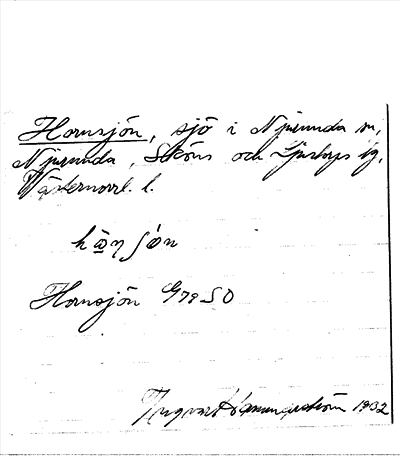 Hamsjön, sjö i Njurunda sn,
Njurunda, Sköns och Ljustorps tg,
Västernorrl. l.
Hamsjön G79 SO
Ingvar Hammarström 1932